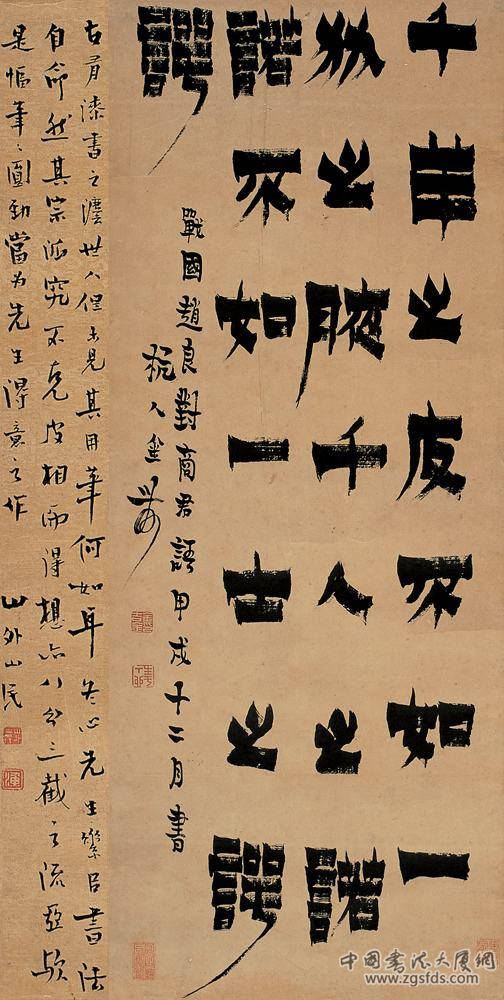 千羊之皮不如一
狐之腋千人之諾
諾不如一士之諤
諤
戰國趙良對商君語甲戌十二月書
杭人金農
古有漆書之法世人但未見其用筆何如耳冬心先生書法
自命然其宗派究不克皮相而得想亦八分之流亞歟
是幅筆々圓勁當为先生得意之作
山外山民
中国书法大厦网
www.zgsfds.com